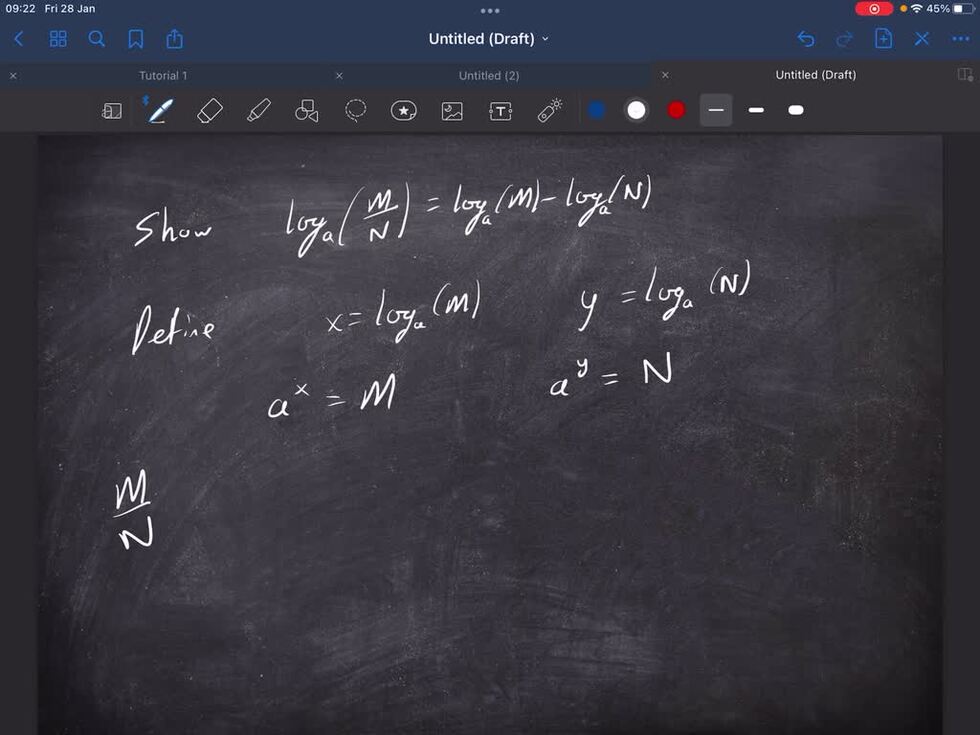 09:22 Fri 28 Jan 45%
Untitled (Draft)
Tutorial 1 Untitled (2) Untitled (Draft)
T
Show logₐ(M/N) = logₐ(M) - logₐ(N)
Define x = logₐ(M) y = logₐ(N)
aˣ = M aʸ = N
M
N